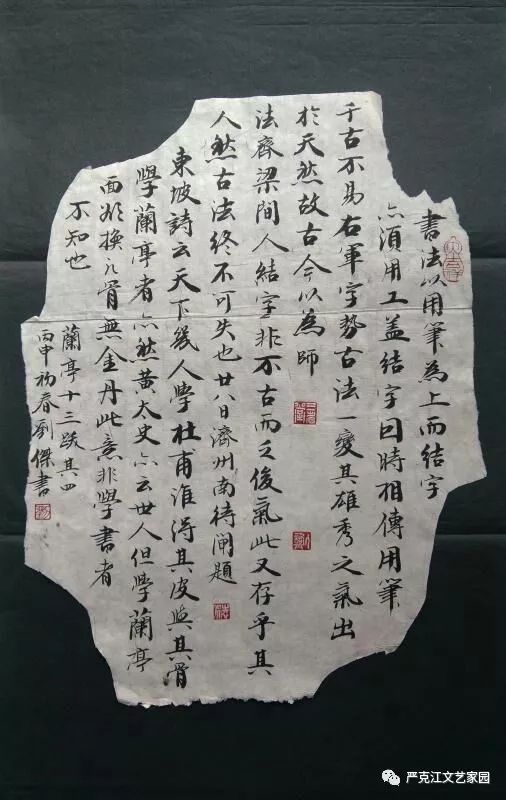 書法以用筆為上而結字
亦須用工盖結字因時相傳用筆
千古不易右軍字勢古法一變其雄秀之氣出
於天然故古今以為師
法齊梁間人結字非不古而乏俊氣此又存乎其
人然古法終不可失也廿八日濟州南待闸題
東坡詩云天下幾人學杜甫谁得其皮與其骨
學蘭亭者亦然黄太史亦云世人但學蘭亭
面欲換凡骨無金丹此意非學書者
不知也
蘭亭十三跋其四
丙申初春劉傑書
严克江文艺家园